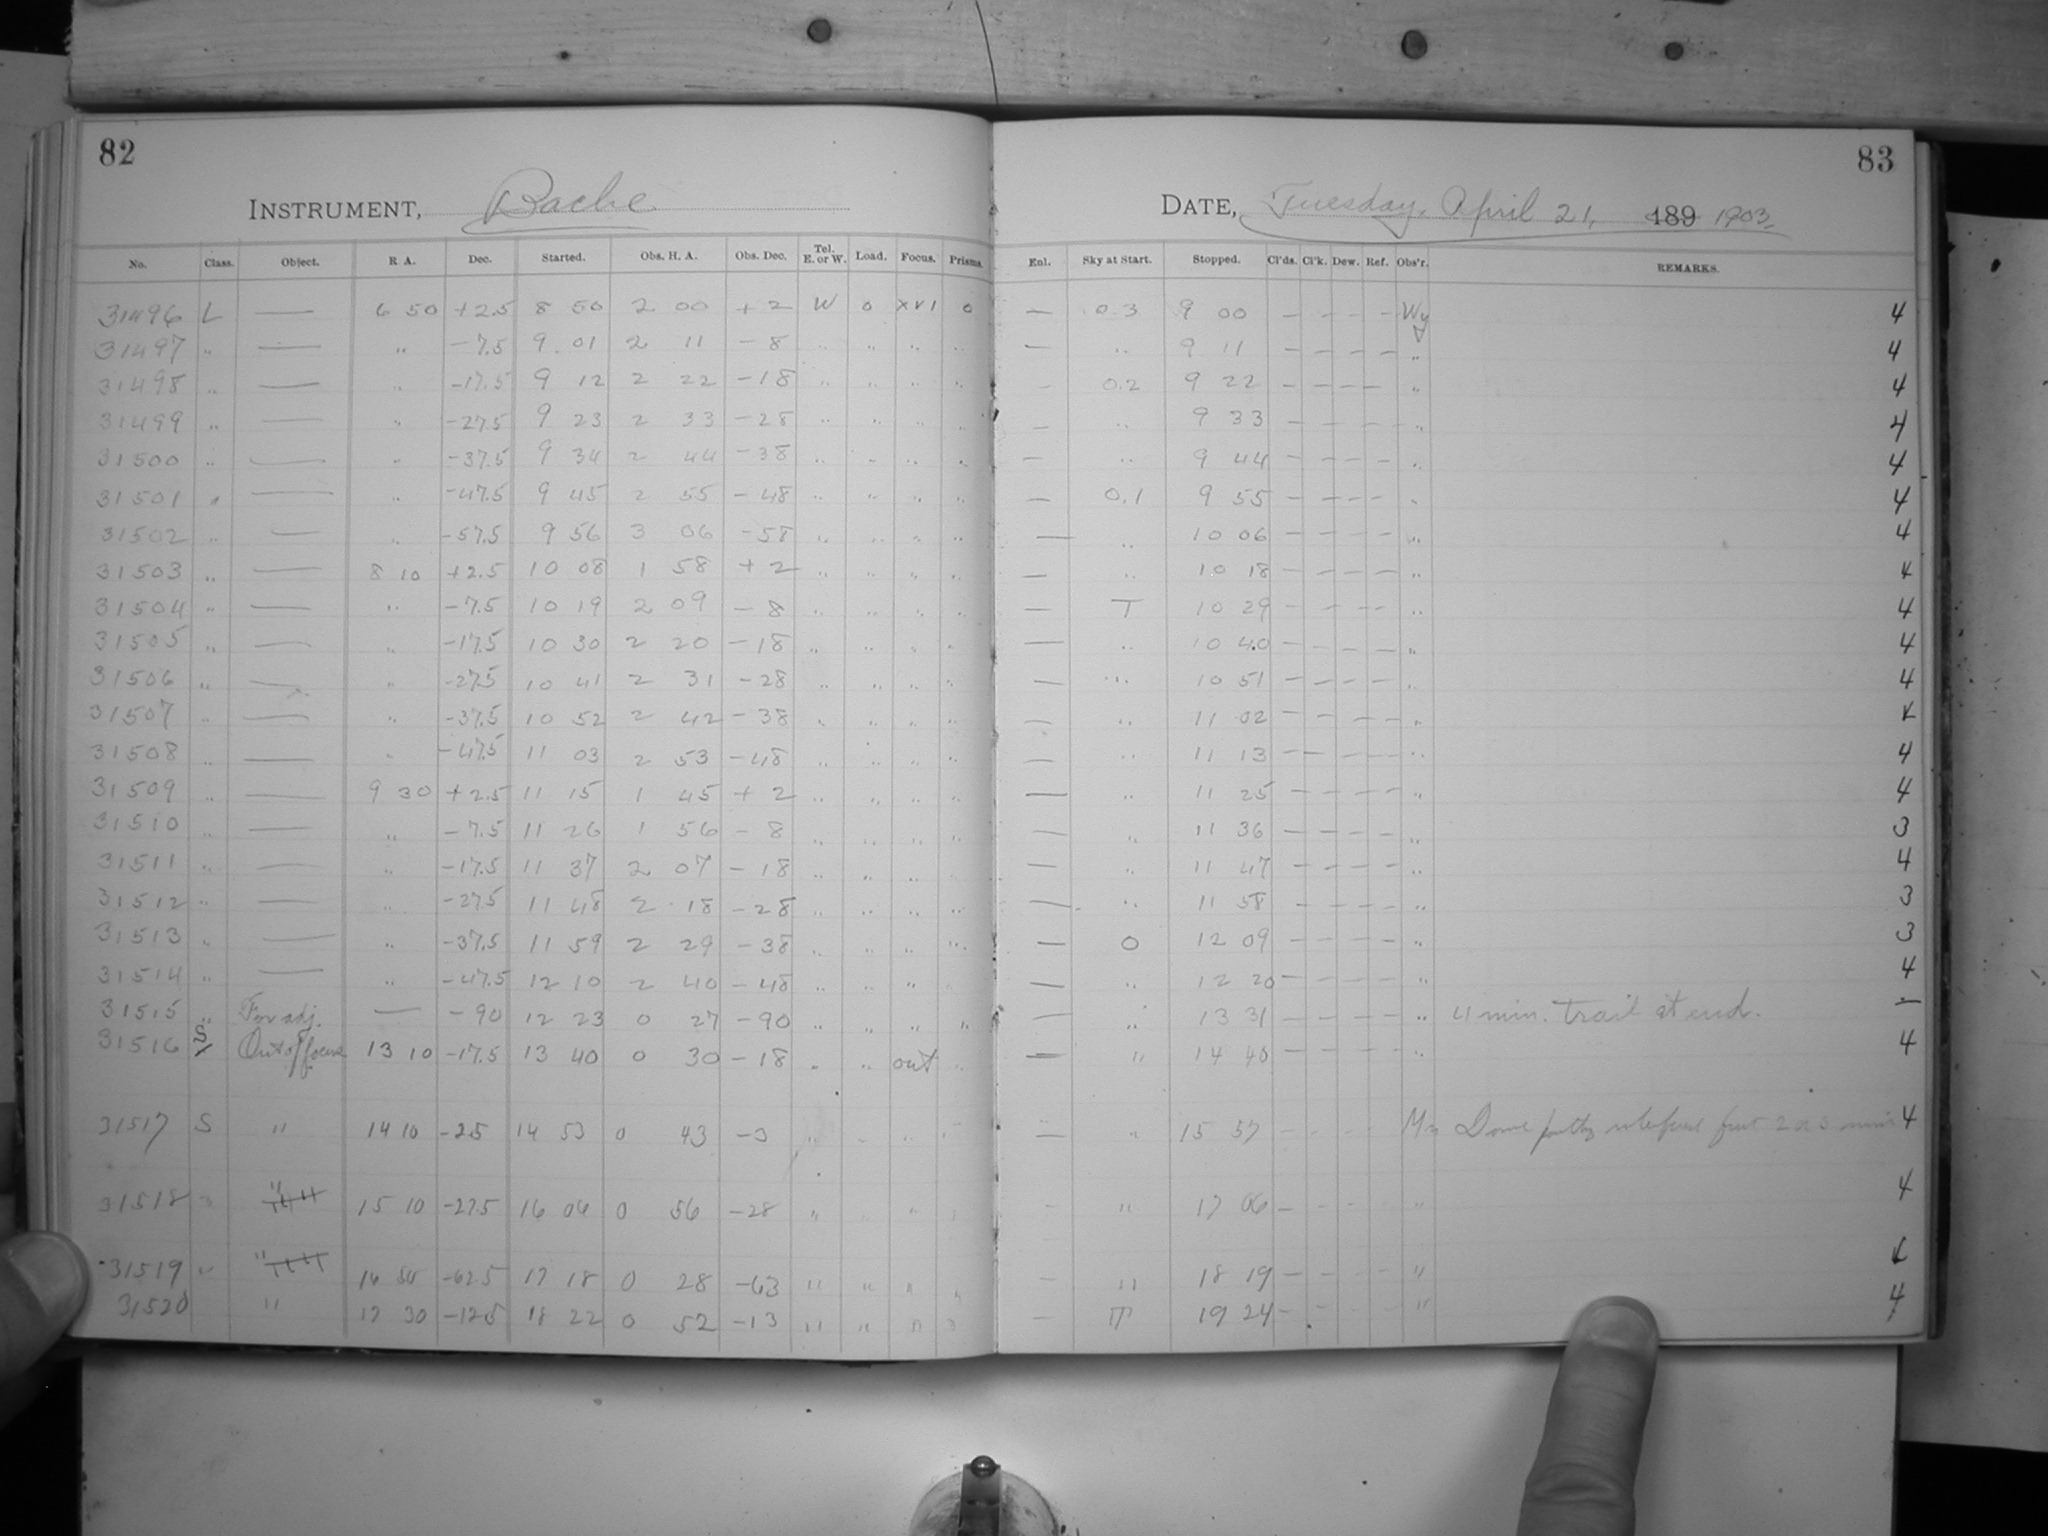 82
83
INSTRUMENT, Bache
DATE, Tuesday, April 21, 189 1903
No. Class. Object. R. A. Dec. Started. Obs. H. A. Obs. Dec. Tel. E. or W. Load. Focus. Prisms. Enl. Sky at Start. Stopped. Cl'ds. Cl'k. Dew. Ref. Obs'r. REMARKS.
31496 L — 6 50 +2.5 8 50 2 00 +2 W 0 XVI 0 — 0.3 9 00 — — — — Wy 4
31497 " — " -7.5 9 01 2 11 -8 " " " " — " 9 11 — — — — " 4
31498 " — " -17.5 9 12 2 22 -18 " " " " — 0.2 9 22 — — — — " 4
31499 " — " -27.5 9 23 2 33 -28 " " " " — " 9 33 — — — — " 4
31500 " — " -37.5 9 34 2 44 -38 " " " " — " 9 44 — — — — " 4
31501 " — " -47.5 9 45 2 55 -48 " " " " — 0.1 9 55 — — — — " 4
31502 " — " -57.5 9 56 3 06 -58 " " " " — " 10 06 — — — — " 4
31503 " — 8 10 +2.5 10 08 1 58 +2 " " " " — " 10 18 — — — — " 4
31504 " — " -7.5 10 19 2 09 -8 " " " " — T 10 29 — — — — " 4
31505 " — " -17.5 10 30 2 20 -18 " " " " — " 10 40 — — — — " 4
31506 " — " -27.5 10 41 2 31 -28 " " " " — " 10 51 — — — — " 4
31507 " — " -37.5 10 52 2 42 -38 " " " " — " 11 02 — — — — " 4
31508 " — " -47.5 11 03 2 53 -48 " " " " — " 11 13 — — — — " 4
31509 " — 9 30 +2.5 11 15 1 45 +2 " " " " — " 11 25 — — — — " 4
31510 " — " -7.5 11 26 1 56 -8 " " " " — " 11 36 — — — — " 3
31511 " — " -17.5 11 37 2 07 -18 " " " " — " 11 47 — — — — " 4
31512 " — " -27.5 11 48 2 18 -28 " " " " — " 11 58 — — — — " 3
31513 " — " -37.5 11 59 2 29 -38 " " " " — 0 12 09 — — — — " 3
31514 " — " -47.5 12 10 2 40 -48 " " " " — " 12 20 — — — — " 4
31515 " For adj. — -90 12 23 0 27 -90 " " " " — " 13 31 — — — — " 4 min. trail at end. —
31516 S Out of focus 13 10 -17.5 13 40 0 30 -18 " " out " — " 14 40 — — — — " 4
31517 S " 14 10 -2.5 14 53 0 43 -3 " " " " — " 15 57 — — — — Dome 2 or 3 min 4
31518 " 15 10 -27.5 16 06 0 56 -28 " " " " — " 17 06 — — — — " 4
31519 " " 16 50 -62.5 17 18 0 28 -63 " " " " — " 18 19 — — — — " 4
31520 " 17 30 -12.5 18 22 0 52 -13 " " " " — T 19 24 — — — — " 4